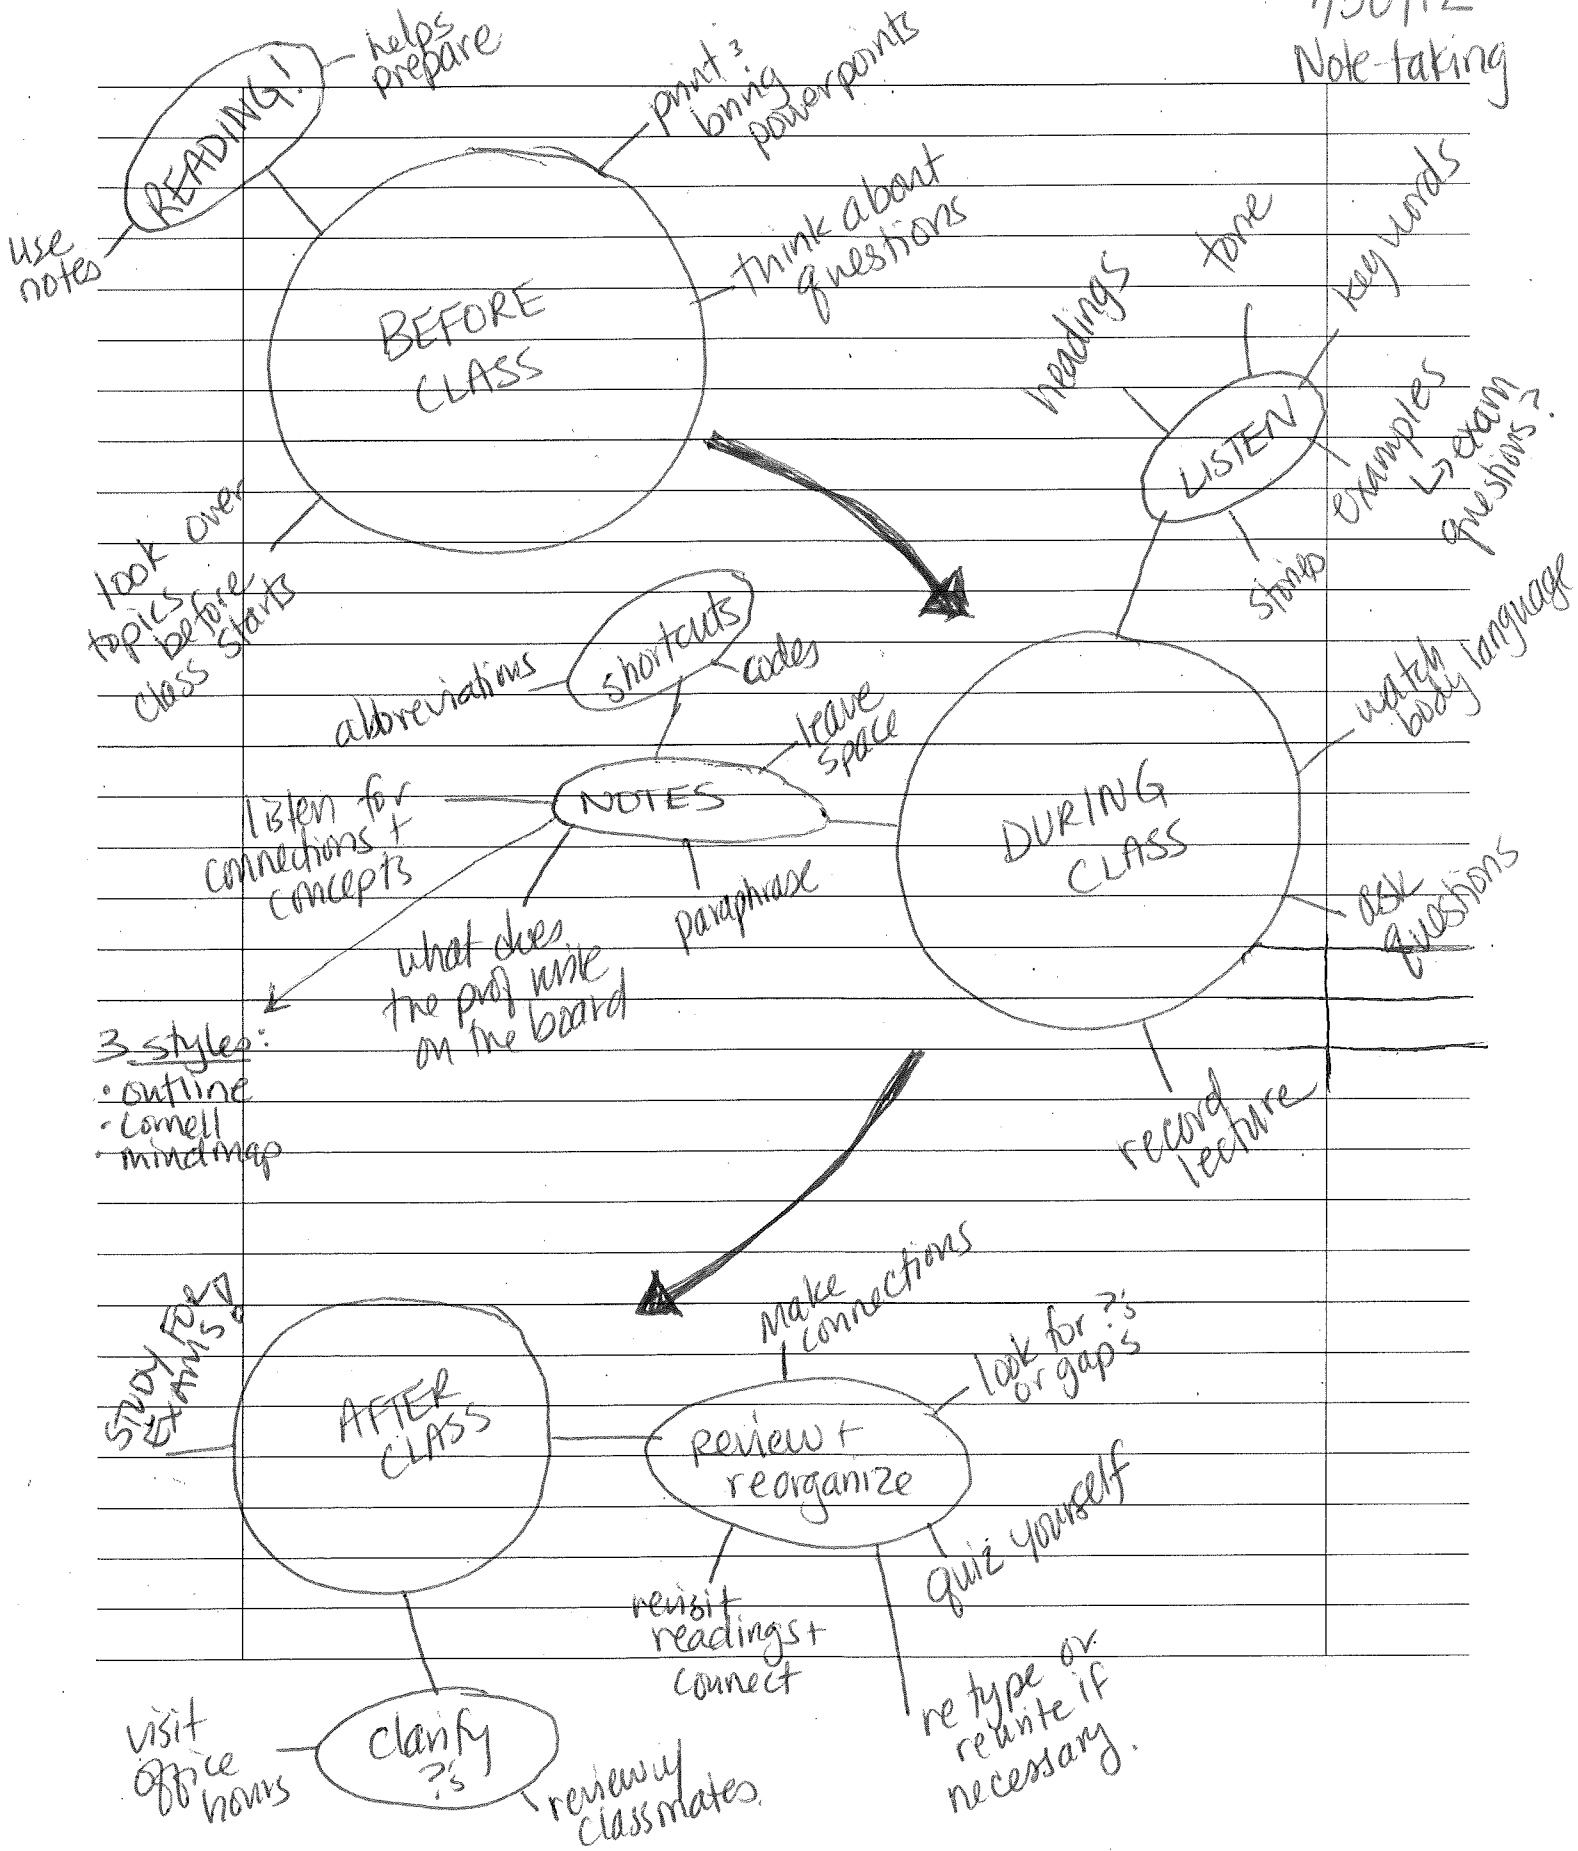 Note-taking
READING!
helps
prepare
use
notes
print &
bring
powerpoints
think about
questions
BEFORE
CLASS
look over
topics
before
class starts
LISTEN
headings
tone
key words
examples
↳ exam
questions?
stories
DURING
CLASS
watch
body language
ask
questions
record
lecture
NOTES
shortcuts
abbreviations
codes
leave
space
listen for
connections +
concepts
what does
the prof write
on the board
paraphrase
3 styles:
• outline
• Cornell
• mindmap
AFTER
CLASS
STUDY FOR
EXAMS!
review +
reorganize
Make
connections
look for ?'s
or gaps
quiz yourself
retype or
rewrite if
necessary.
revisit
readings +
connect
clarify
?'s
visit
office
hours
review w/
classmates.